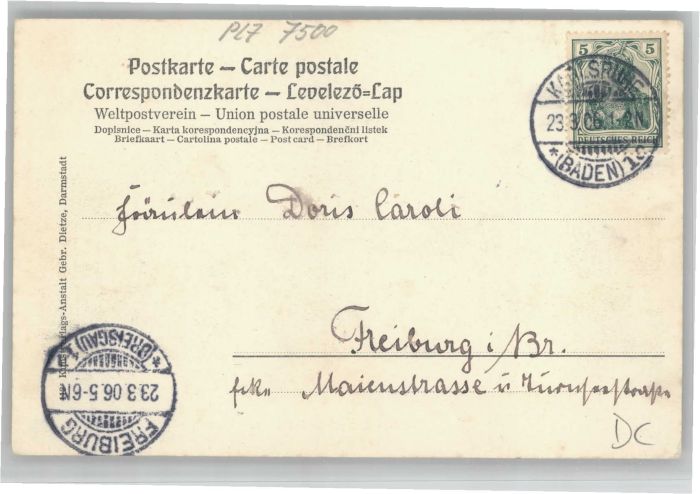 PLZ 7500
Postkarte – Carte postale
Correspondenzkarte – Levelező=Lap
Weltpostverein – Union postale universelle
Dopisnice – Karta korespondencyjna – Korespondenční lístek
Briefkaart – Cartolina postale – Post card – Brefkort
5 5
DEUTSCHES REICH
KARLSRUHE
23.3.06.1-2N
*(BADEN)1c
Fräulein Doris Caroli
Freiburg i/Br.
Ecke Maienstrasse u Türkenstrasse
DC
Verlags-Anstalt Gebr. Dietze, Darmstadt
FREIBURG
23.3.06.5-6N
*(BREISGAU)1*